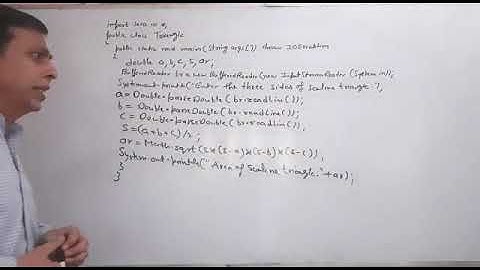 import java.io.*;
public class Triangle
{
public static void main(String args[]) throws IOException
{
double a, b, c, s, ar;
BufferedReader br = new BufferedReader(new InputStreamReader(System.in));
System.out.println("Enter the three sides of scalene triangle:");
a = Double.parseDouble(br.readLine());
b = Double.parseDouble(br.readLine());
c = Double.parseDouble(br.readLine());
s = (a+b+c)/2;
ar = Math.sqrt(s*(s-a)*(s-b)*(s-c));
System.out.println("Area of Scalene triangle:"+ar);
}
}